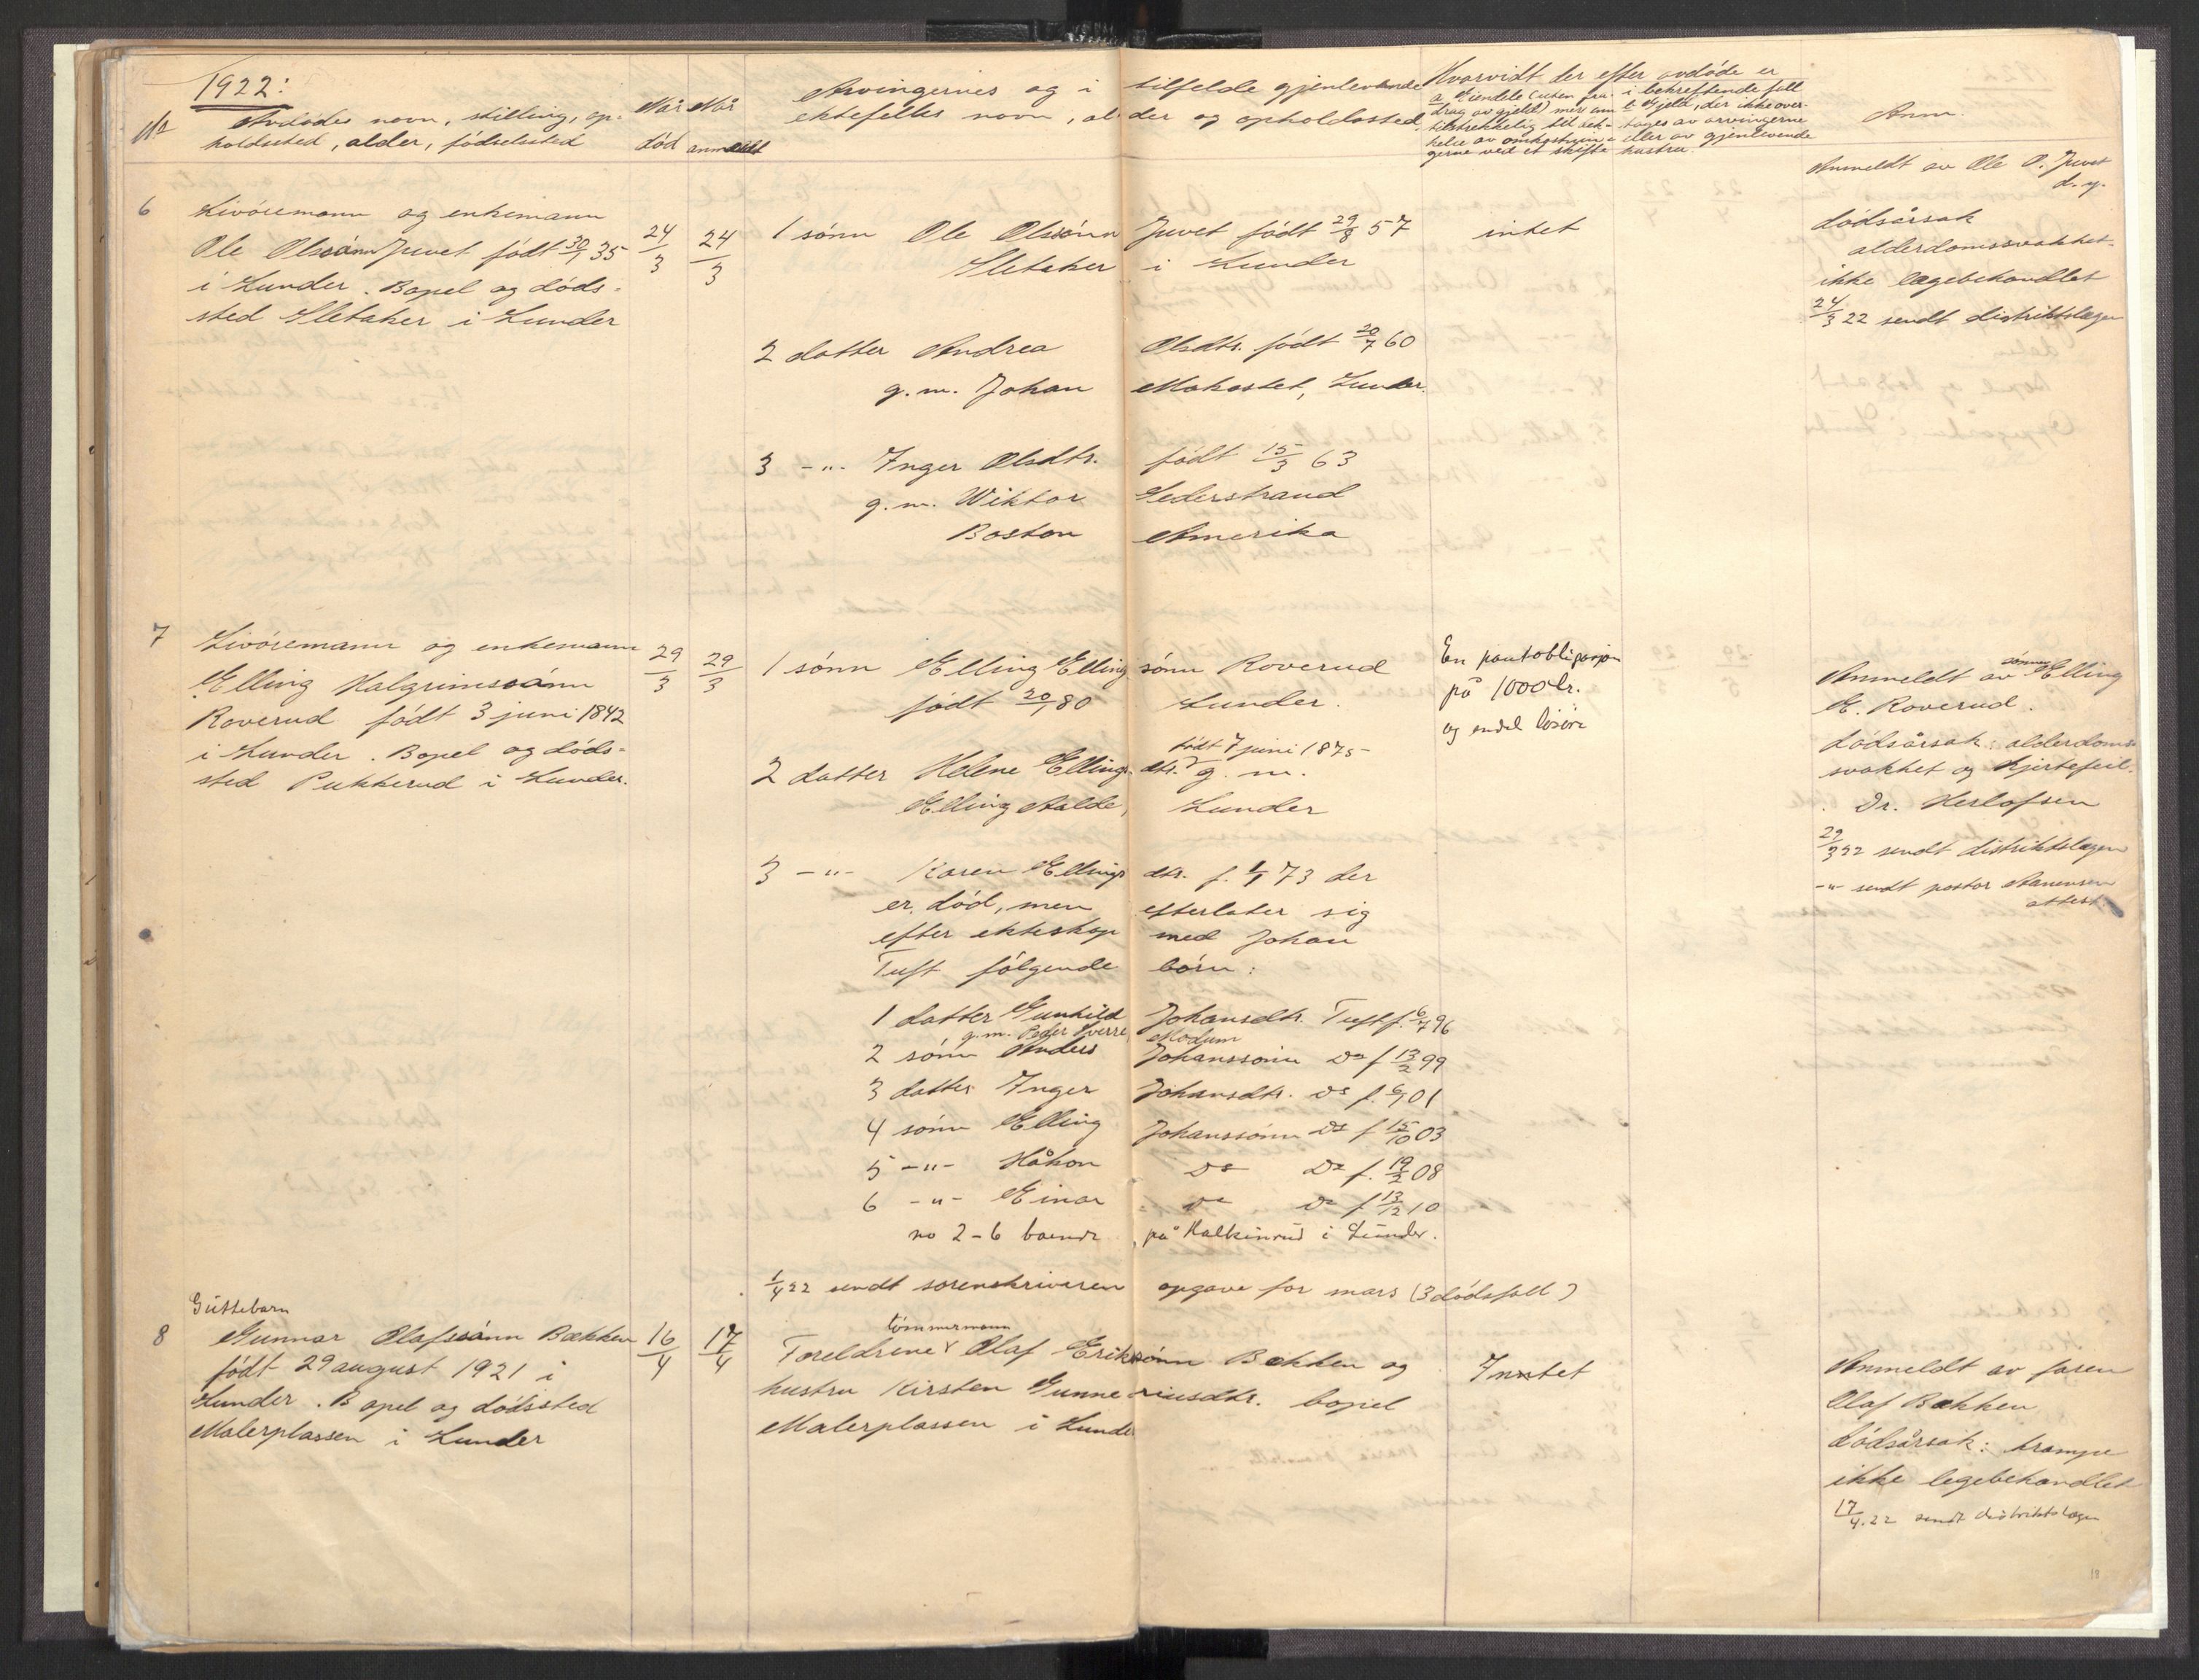 1922:
No Avdødes navn, stilling, op-
holdssted, alder, fødselssted
Når død
Når anmeldt
Arvingernes og i tilfelde gjenlevende
ektefelles navn, alder og opholdssted
Hvorvidt der efter avdøde er
a. Eiendele (uten fra-
drag av gjeld) mer enn
tilstrekkelig til dek-
kelse av omkostnin-
gerne ved et skifte
i bekreftende fall
b. Gjeld, der ikke over-
tages av arvingerne
eller av gjenlevende
hustru.
Anm.
6
Livøremann og enkemann
Ole Olssønn Juvet født 30/1 35
i Lunder. Bopel og døds-
sted Sletaker i Lunder
24/3
24/3
1 sønn Ole Olssønn Juvet født 29/8 57
Sletaker i Lunder
2 datter Andrea Olsdtr. født 20/7 60
g.m. Johan Mokastet, Lunder.
3 -"- Inger Olsdtr. født 15/3 63
g.m. Wiktor Sederstrand
Boston Amerika
intet
Anmeldt av Ole O. Juvet
d.y.
dødsårsak
alderdomssvakhet.
ikke lægebehandlet
24/3 22 sendt distriktslægen
7
Livøremann og enkemann
Elling Halgrimssønn
Roverud født 3 juni 1842
i Lunder. Bopel og døds-
sted Pukkerud i Lunder.
29/3
29/3
1 sønn Elling Ellingsønn Roverud
født 20/1 80 Lunder.
født 7 juni 1875
2 datter Helene Ellings- dtr. g.m.
Elling Aalde, Lunder
3 -"- Karen Ellings dtr. f. 1/1 73 der
er død, men efterlater sig
efter ekteskap med Johan
Tuft følgende børn:
1 datter Gunhild Johansdtr. Tuft f. 6/7 96
g.m. Peder Sverre, Modum
2 sønn Anders Johanssønn Do f 13/2 99
3 datter Inger Johansdtr. Do f. 6/1 01
4 sønn Elling Johanssønn Do f 15/10 03
5 -"- Håkon Do Do f. 19/2 08
6 -"- Einar Do Do f 13/12 10
no 2-6 boende på Kalkinrud i Lunder.
En pantobligasjon
på 1000 kr.
og endel løsøre
Anmeldt av sønnen Elling
E. Roverud.
Dødsårsak: alderdoms-
svakhet og hjertefeil.
Dr. Herlofsen
29/3 22 sendt distriktslægen
-"- sendt pastor Aanensen
attest.
1/4 22 sendt sorenskriveren opgave for mars (3 dødsfall)
8
Guttebarn
Gunnar Olafssønn Bækken
født 29 august 1921 i
Lunder. Bopel og dødssted
Malerplassen i Lunder
16/4
17/4
tømmermann
Foreldrene Olaf Erikssønn Bækken og
hustru Kirsten Gunneriusdtr. bopel
Malerplassen i Lunder
Intet
Anmeldt av faren
Olaf Bækken
Dødsårsak: krampe
ikke legebehandlet
17/4.22 sendt distriktslægen
18